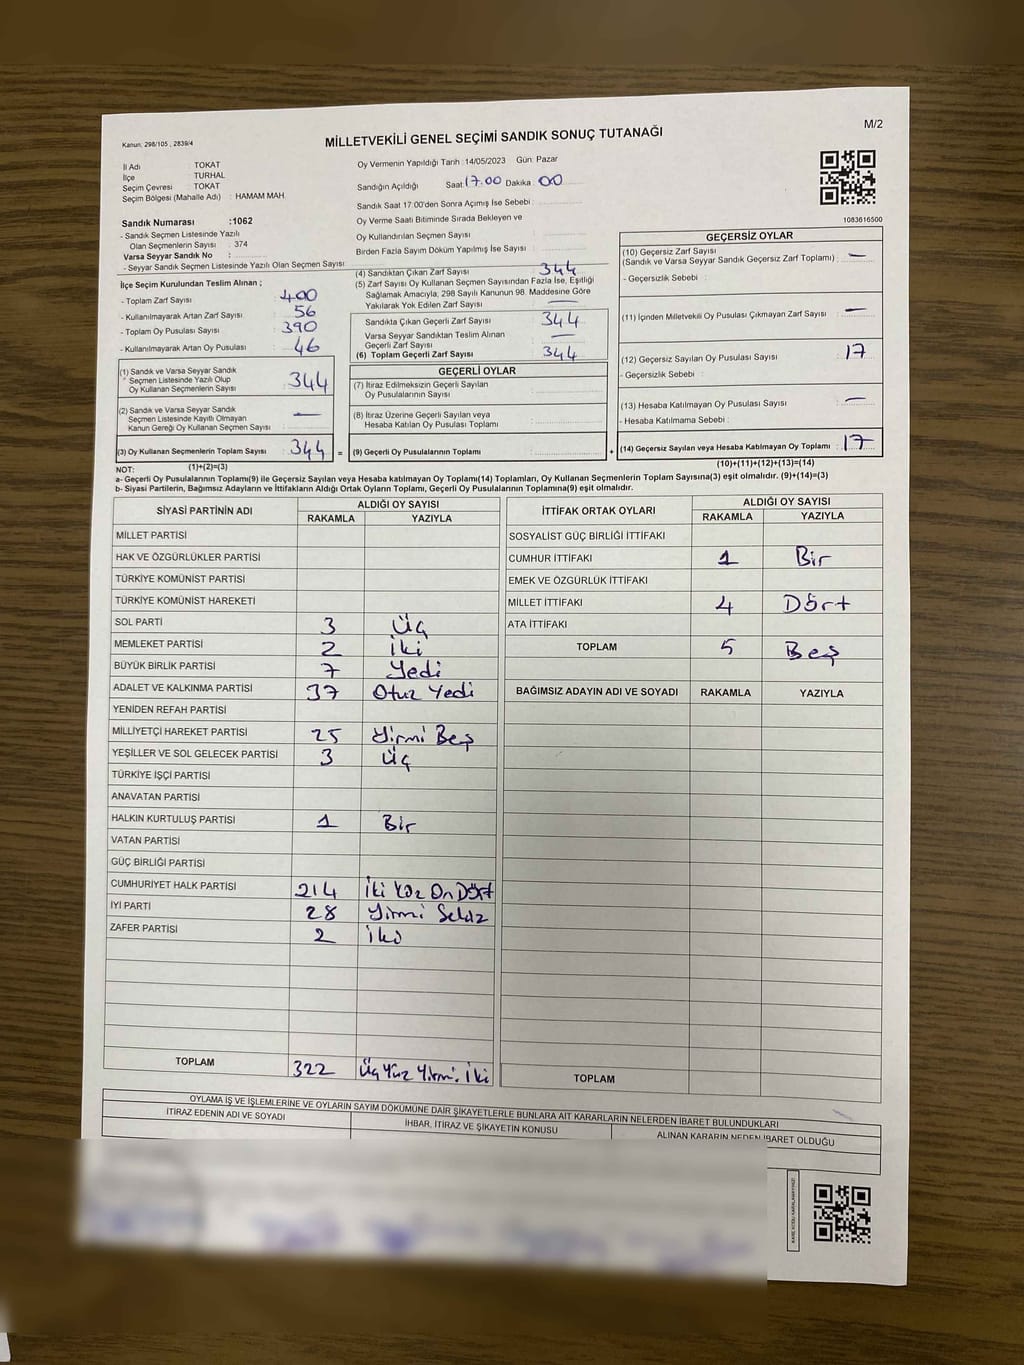 Kanun, 298/105 , 2839/4
MİLLETVEKİLİ GENEL SEÇİMİ SANDIK SONUÇ TUTANAĞI
M/2
İl Adı : TOKAT
İlçe : TURHAL
Seçim Çevresi : TOKAT
Seçim Bölgesi (Mahalle Adı) : HAMAM MAH
Sandık Numarası :1062
- Sandık Seçmen Listesinde Yazılı
Olan Seçmenlerin Sayısı : 374
Varsa Seyyar Sandık No :
- Seyyar Sandık Seçmen Listesinde Yazılı Olan Seçmen Sayısı
Oy Vermenin Yapıldığı Tarih :14/05/2023 Gün: Pazar
Sandığın Açıldığı Saat: 17.00 Dakika: 00
Sandık Saat 17:00'den Sonra Açımış İse Sebebi :
Oy Verme Saati Bitiminde Sırada Bekleyen ve
Oy Kullandırılan Seçmen Sayısı :
Birden Fazla Sayım Döküm Yapılmış İse Sayısı :
1083616500
İlçe Seçim Kurulundan Teslim Alınan ;
- Toplam Zarf Sayısı : 400
- Kullanılmayarak Artan Zarf Sayısı : 56
- Toplam Oy Pusulası Sayısı : 390
- Kullanılmayarak Artan Oy Pusulası : 46
(1) Sandık ve Varsa Seyyar Sandık
Seçmen Listesinde Yazılı Olup
Oy Kullanan Seçmenlerin Sayısı : 344
(2) Sandık ve Varsa Seyyar Sandık
Seçmen Listesinde Kayıtlı Olmayan
Kanun Gereği Oy Kullanan Seçmen Sayısı : —
(3) Oy Kullanan Seçmenlerin Toplam Sayısı : 344
(1)+(2)=(3)
(4) Sandıktan Çıkan Zarf Sayısı : 344
(5) Zarf Sayısı Oy Kullanan Seçmen Sayısından Fazla İse, Eşitliği
Sağlamak Amacıyla, 298 Sayılı Kanunun 98. Maddesine Göre
Yakılarak Yok Edilen Zarf Sayısı : —
Sandıkta Çıkan Geçerli Zarf Sayısı : 344
Varsa Seyyar Sandıktan Teslim Alınan
Geçerli Zarf Sayısı : —
(6) Toplam Geçerli Zarf Sayısı : 344
GEÇERLİ OYLAR
(7) İtiraz Edilmeksizin Geçerli Sayılan
Oy Pusulalarının Sayısı :
(8) İtiraz Üzerine Geçerli Sayılan veya
Hesaba Katılan Oy Pusulası Toplamı :
= (9) Geçerli Oy Pusulalarının Toplamı :
GEÇERSİZ OYLAR
(10) Geçersiz Zarf Sayısı
(Sandık ve Varsa Seyyar Sandık Geçersiz Zarf Toplamı) : —
- Geçersizlik Sebebi :
(11) İçinden Milletvekili Oy Pusulası Çıkmayan Zarf Sayısı : —
(12) Geçersiz Sayılan Oy Pusulası Sayısı : 17
- Geçersizlik Sebebi :
(13) Hesaba Katılmayan Oy Pusulası Sayısı : —
- Hesaba Katılmama Sebebi :
+ (14) Geçersiz Sayılan veya Hesaba Katılmayan Oy Toplamı : 17
(10)+(11)+(12)+(13)=(14)
NOT:
a- Geçerli Oy Pusulalarının Toplamı(9) ile Geçersiz Sayılan veya Hesaba katılmayan Oy Toplamı(14) Toplamları, Oy Kullanan Seçmenlerin Toplam Sayısına(3) eşit olmalıdır. (9)+(14)=(3)
b- Siyasi Partilerin, Bağımsız Adayların ve İttifakların Aldığı Ortak Oyların Toplamı, Geçerli Oy Pusulalarının Toplamına(9) eşit olmalıdır.
SİYASİ PARTİNİN ADI ALDIĞI OY SAYISI
RAKAMLA YAZIYLA
MİLLET PARTİSİ
HAK VE ÖZGÜRLÜKLER PARTİSİ
TÜRKİYE KOMÜNİST PARTİSİ
TÜRKİYE KOMÜNİST HAREKETİ
SOL PARTİ 3 Üç
MEMLEKET PARTİSİ 2 İki
BÜYÜK BİRLİK PARTİSİ 7 Yedi
ADALET VE KALKINMA PARTİSİ 37 Otuz Yedi
YENİDEN REFAH PARTİSİ
MİLLİYETÇİ HAREKET PARTİSİ 25 Yirmi Beş
YEŞİLLER VE SOL GELECEK PARTİSİ 3 Üç
TÜRKİYE İŞÇİ PARTİSİ
ANAVATAN PARTİSİ
HALKIN KURTULUŞ PARTİSİ 1 Bir
VATAN PARTİSİ
GÜÇ BİRLİĞİ PARTİSİ
CUMHURİYET HALK PARTİSİ 214 İki Yüz On Dört
İYİ PARTİ 28 Yirmi Sekiz
ZAFER PARTİSİ 2 İki
TOPLAM 322 Üç Yüz Yirmi İki
İTTİFAK ORTAK OYLARI ALDIĞI OY SAYISI
RAKAMLA YAZIYLA
SOSYALİST GÜÇ BİRLİĞİ İTTİFAKI
CUMHUR İTTİFAKI 1 Bir
EMEK VE ÖZGÜRLÜK İTTİFAKI
MİLLET İTTİFAKI 4 Dört
ATA İTTİFAKI
TOPLAM 5 Beş
BAĞIMSIZ ADAYIN ADI VE SOYADI RAKAMLA YAZIYLA
TOPLAM
OYLAMA İŞ VE İŞLEMLERİNE VE OYLARIN SAYIM DÖKÜMÜNE DAİR ŞİKAYETLERLE BUNLARA AİT KARARLARIN NELERDEN İBARET BULUNDUKLARI
İTİRAZ EDENİN ADI VE SOYADI İHBAR, İTİRAZ VE ŞİKAYETİN KONUSU ALINAN KARARIN NEDEN İBARET OLDUĞU